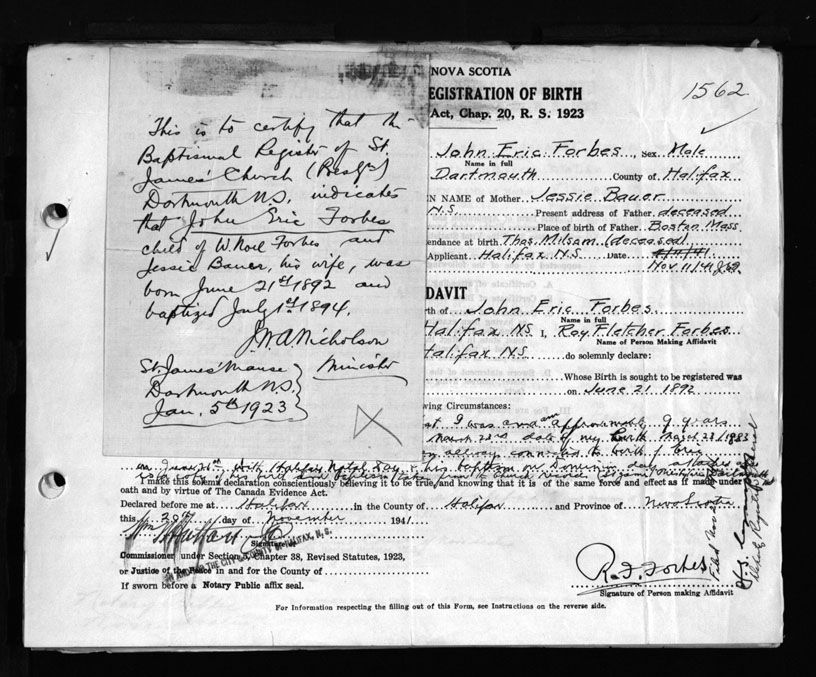 This is to certify that the
Baptismal Register of St.
James' Church (Presyn)
Dartmouth N.S. indicates
that John Eric Forbes
child of W Noel Forbes and
Jessie Bauer, his wife, was
born June 21st 1892 and
baptized July 1st 1894.
J.W.A Nicholson
Minister
St. James' Manse
Dartmouth N.S.
Jan. 5th 1923
NOVA SCOTIA
EGISTRATION OF BIRTH
Act, Chap. 20, R. S. 1923
1562
John Eric Forbes, Sex Male
Name in full
Dartmouth County of Halifax
EN NAME of Mother Jessie Bauer
N.S. Present address of Father deceased
Place of birth of Father Boston Mass.
endance at birth Thos. Milsom (deceased)
Applicant Halifax N.S Date
Nov. 11/41
DAVIT
rth of John Eric Forbes
Name in full
Halifax N.S I, Roy Fletcher Forbes
Name of Person Making Affidavit
Halifax N.S do solemnly declare:
Whose Birth is sought to be registered was
on June 21 1892
wing Circumstances:
I was and am approximately 9 years
date of my birth March 23/1883
I make this solemn declaration conscientiously believing it to be true, and knowing that it is of the same force and effect as if made under
oath and by virtue of The Canada Evidence Act.
Declared before me at Halifax in the County of Halifax and Province of Nova Scotia
this 20th day of November 1941
Signature
Commissioner under Section 3, Chapter 38, Revised Statutes, 1923,
or Justice of the Peace in and for the County of
If sworn before a Notary Public affix seal.
R.F. Forbes
Signature of Person making Affidavit
For Information respecting the filling out of this Form, see Instructions on the reverse side.